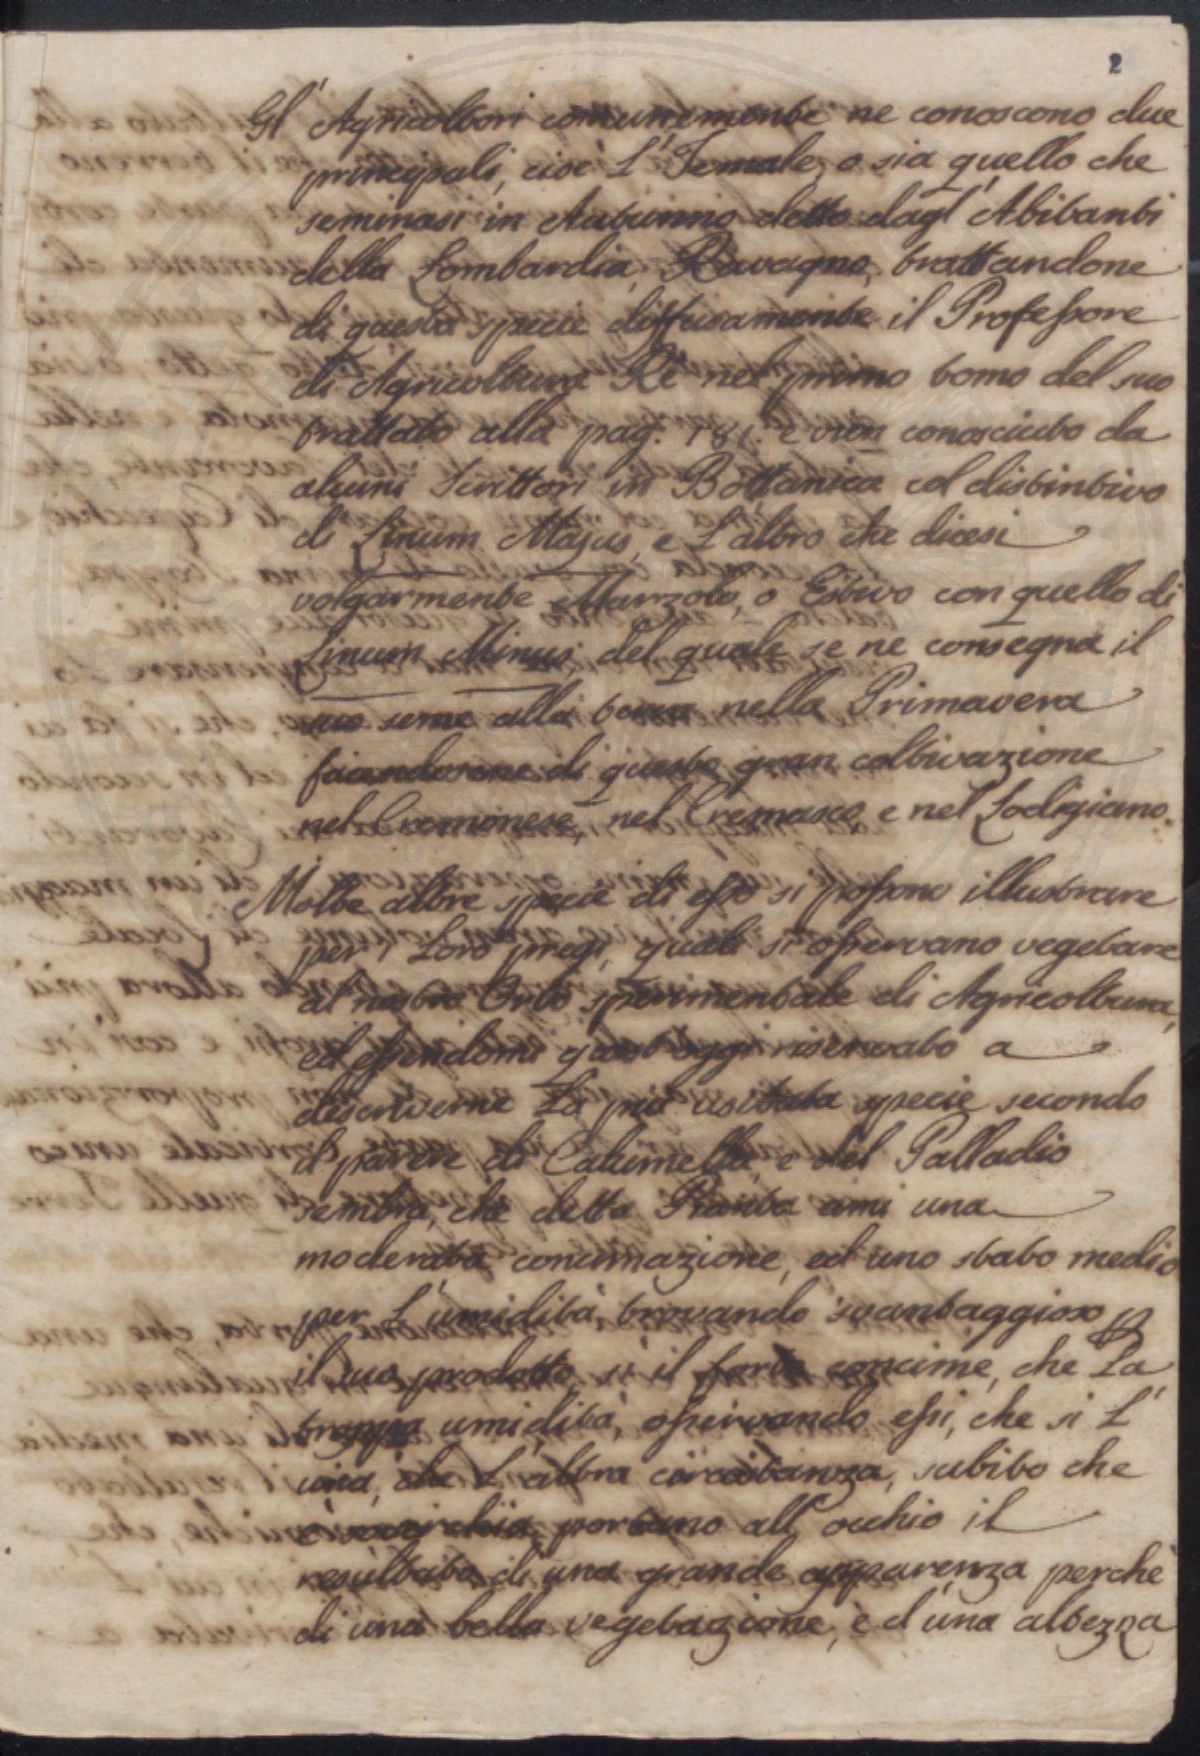 2
Gl' Agricoltori comunemente ne conoscono due
principali, cioè L'Iemale, o sia quello che
seminasi in Autunno detto dagl' Abitanti
della Lombardia, Ravagno, trattandone
di questa specie diffusamente il Professore
di Agricoltura Re nel primo tomo del suo
trattato alla pag. 181. e vien conosciuto da
alcuni Scrittori in Bottanica col distintivo
di Linum Majus, e L'altro che dicesi
volgarmente Marzolo, o Estivo con quello di
Linum Minus, del quale se ne consegna il
suo seme alla terra nella Primavera
facendosene di questo gran coltivazione
nel Cremonese, nel Cremasco, e nel Lodigiano.
Molte altre specie di esso si possono illustrare
per i Loro pregi, quali si osservano vegetare
al nostro Orto sperimentale di Agricoltura,
ed essendomi quest'oggi riservato a
descriverne La più usitata specie secondo
il parere di Calumella, e del Palladio
sembra, che detta Pianta ami una
moderata concimazione, ed uno stato medio
per L'umidità, trovando svantaggioso p
il suo prodotto, sì il forte concime, che La
troppa umidità, osservando essi, che sì L'
una, che L'altra circostanza, subito che
portano all' occhio il
resultato di una grande apparenza perchè
di una bella vegetazione, e d'una altezza